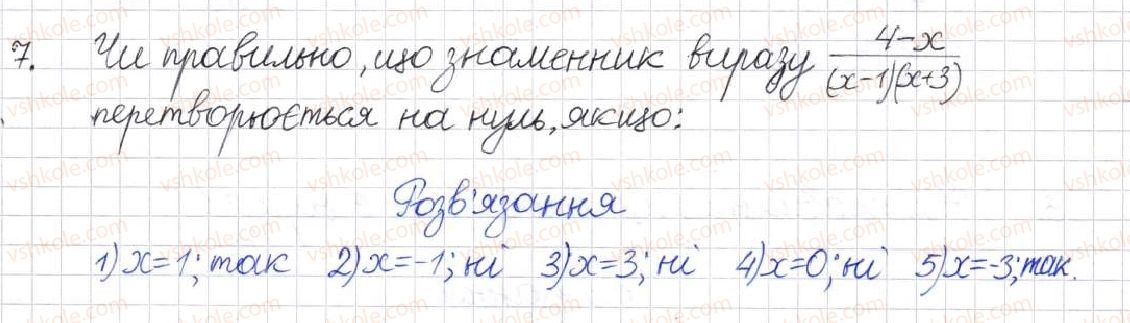 7. Чи правильно, що знаменник виразу (4-x)/((x-1)(x+3))
перетворюється на нуль, якщо:
Розв'язання
1) x=1; так 2) x=-1; ні 3) x=3; ні 4) x=0; ні 5) x=-3; так.